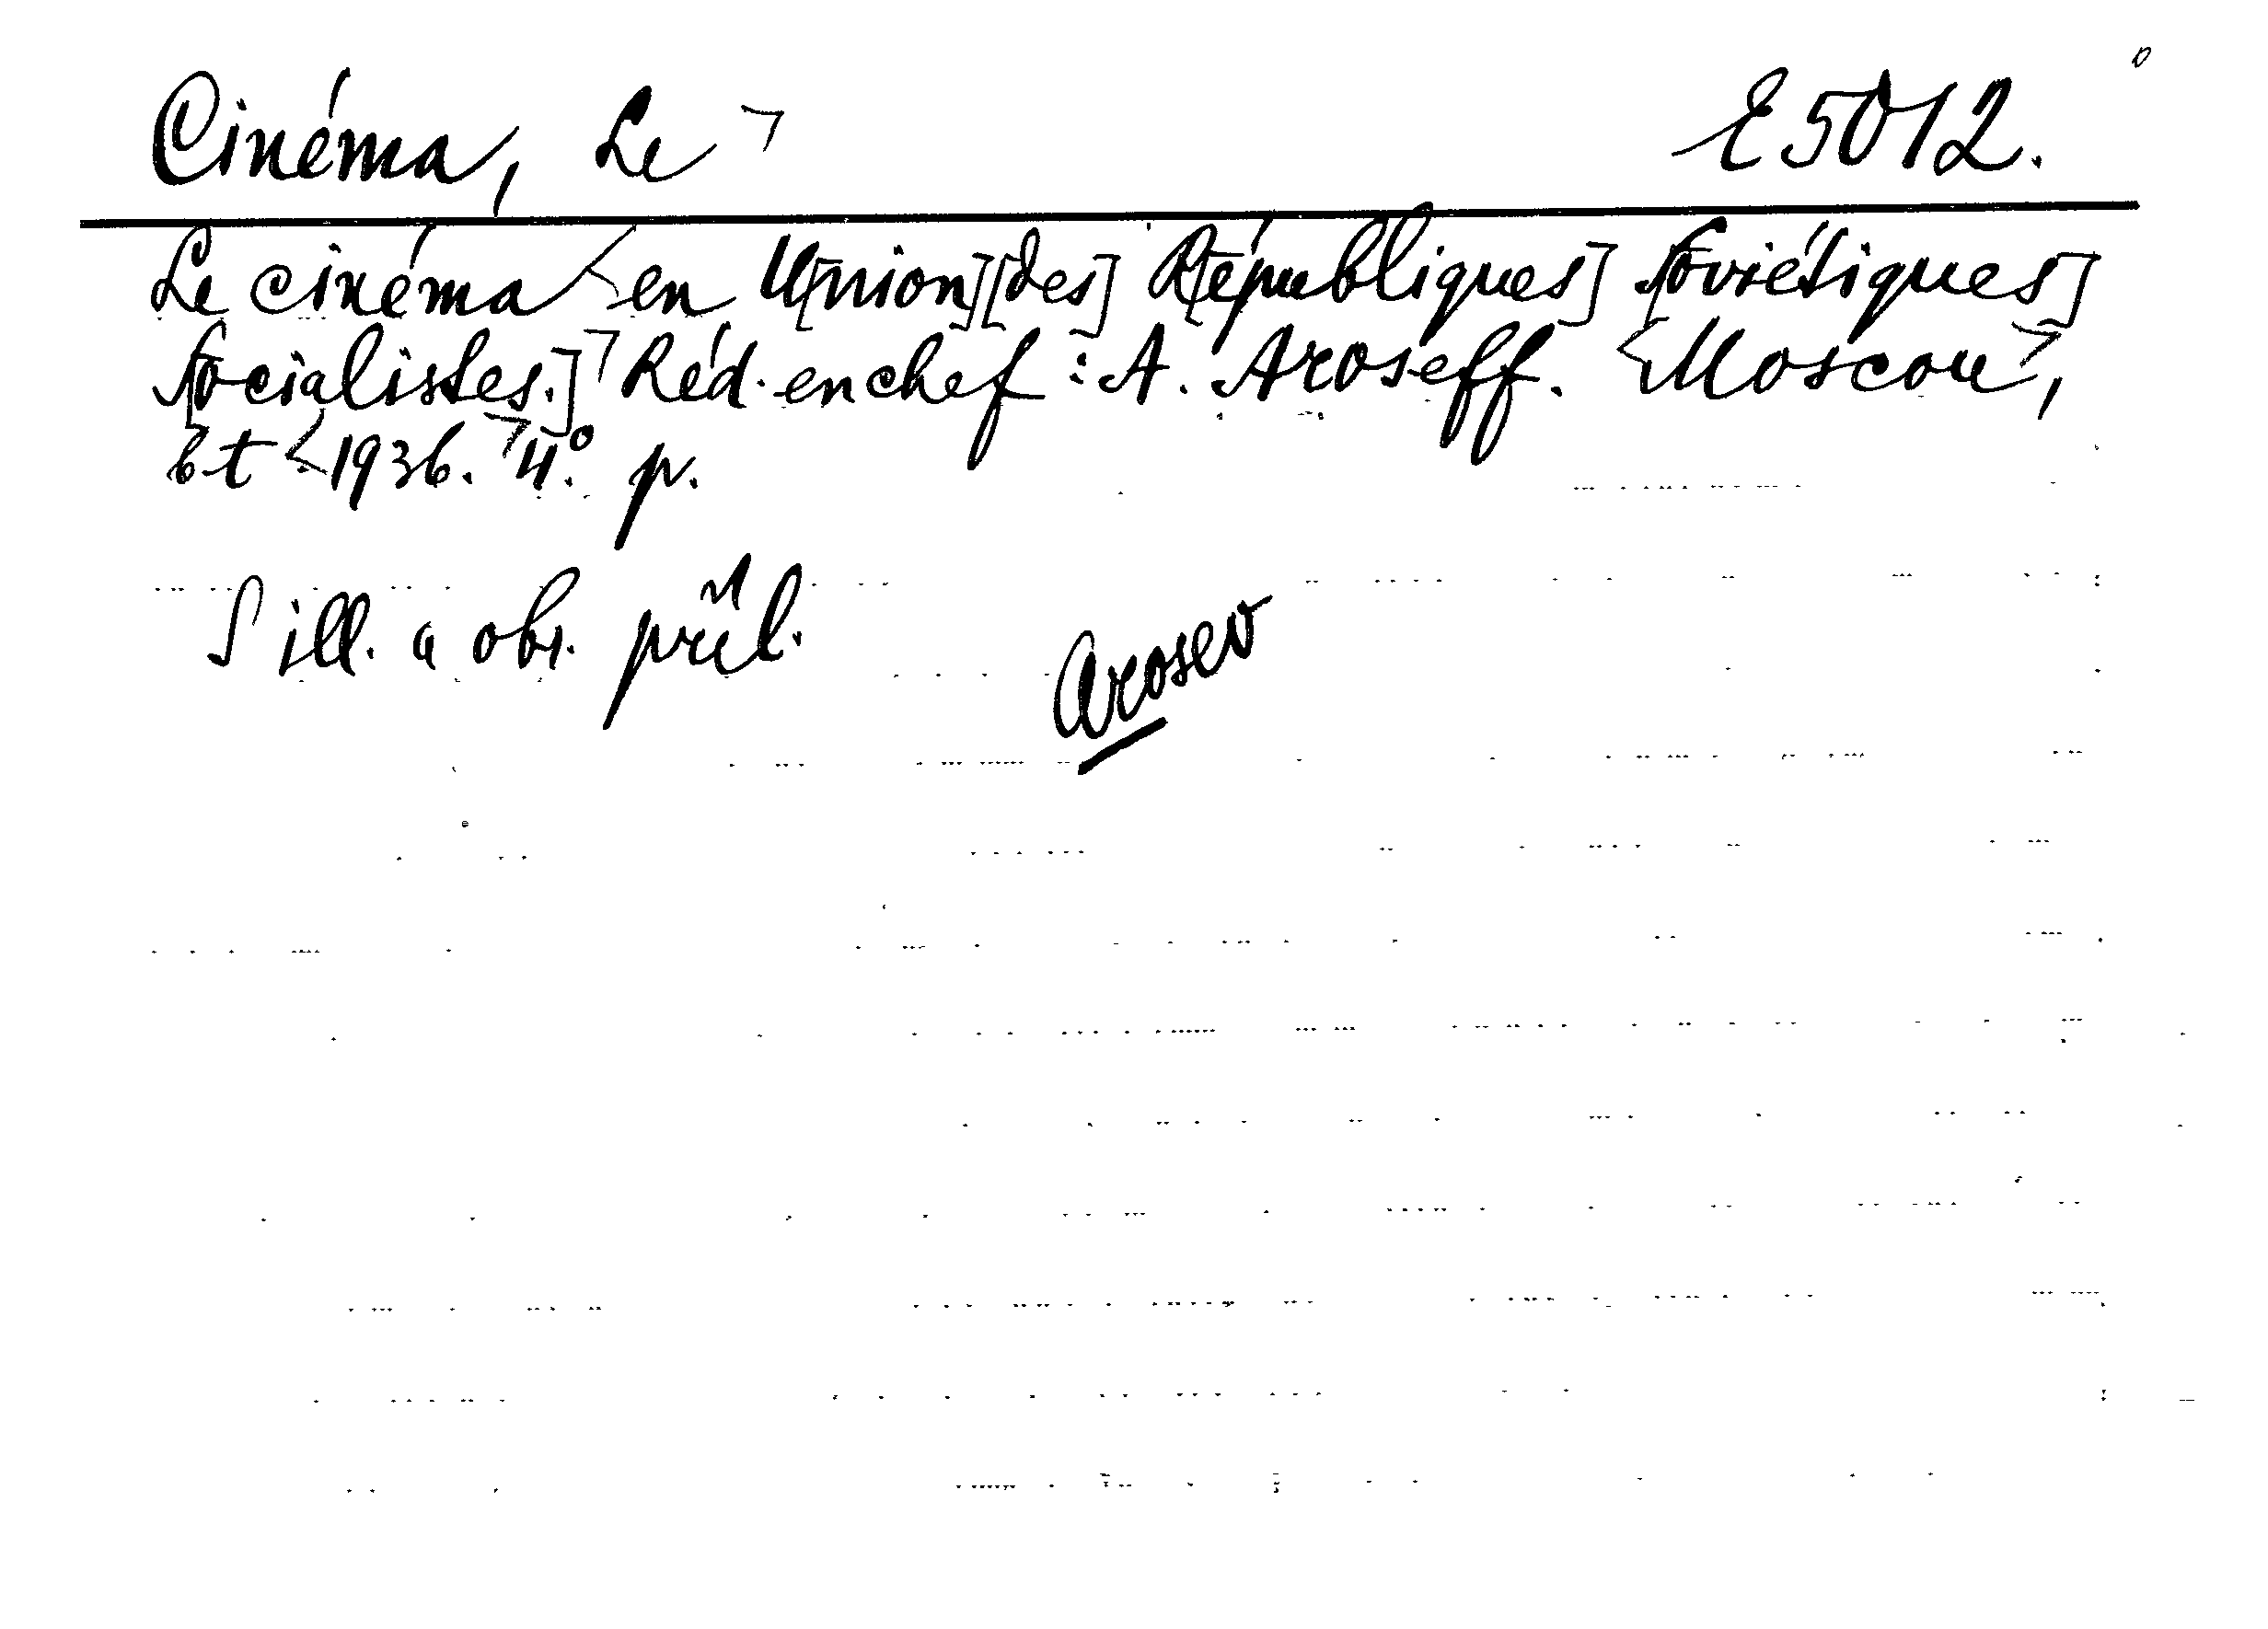 Cinéma, Le ¬ E 5012.
Le cinéma <en U[nion] [des] R[épubliques] S[oviétiques]
S[ocialistes.]¬ Réd. en chef: A. Aroseff. <Moscou¬,
bt <1936.¬ 4.° p.
S ill. a obr. příl.
Arosev